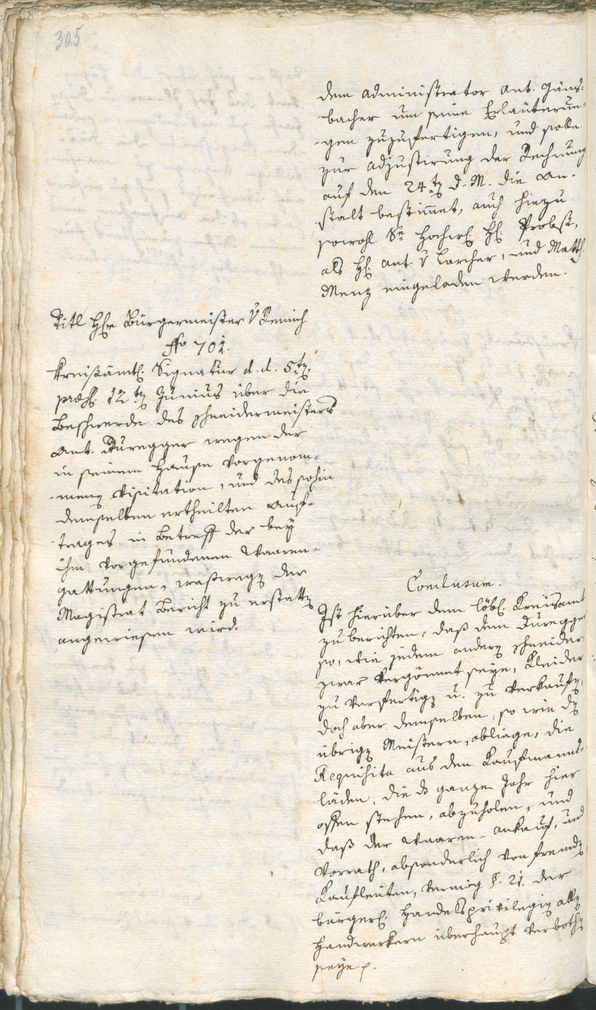 305
dem Administrator Ant. Gäns-
bacher um seine Erläuterun-
gen zuzufertigen, und seÿe
zur Adjustirung der Rechnung
auf den 24tn d. M. die An-
stalt bestimet, auch hiezu
sowohl Sr Hochw. H. Probst,
als H. Ant. v Larcher, und Math.
Menz eingeladen werden.
Titl Hr Bürgermeister v Remich
No 701.
Kreisämtl. Signatur d. d. 5tn,
präs. 12.tn Junius über die
Beschwerde des Schneidermeisters
Ant. Duregger wegen der
in seinem Hause vorgenom-
menen Visitation, und des sohin
demselben ertheilten Auf-
trages in Betreff der beÿ
ihm vorgefundenen Waaren-
gattungen, weßwegen der
Magistrat Bericht zu erstatten
angewiesen wird.
Conclusum.
Ist hierüber dem löbl. Kreisamt
zu berichten, daß dem Duregger
so, wie jedem andern Schneider
zwar vergönnet seÿe, Kleider
zu verfertigen u. zu verkaufen,
doch aber demselben, so wie den
übrigen Meistern, abliege, die
Requisita aus den Kaufmanns-
läden, die das ganze Jahr hier
offen stehen, abzuholen, und
daß der Waaren-Ankauf, und
Vorrath, absonderlich von fremden
Kaufleuten, vermög §. 21. der
bürgerl. Handelsprivilegien allen
Handwerkern überhaupt verbothen
seÿe p.